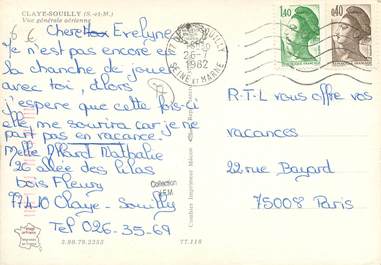 CLAYE-SOUILLY (S.-et-M.)
Vue générale aérienne
Chere Evelyne
Je n'est pas encore eu
la chanche de jouer
avec toi, alors
j'espere que cette fois-ci
elle me sourira car je ne
part pas en vacance.
Melle Allard Nathalie
26 allée des lilas
bois Fleury
77410 Claye-Souilly
Tel 026-35-69
3.88.79.2355
77.118
Combier Imprimeur Mâcon
Collection
CLAYE-SOUILLY
26-7
1982
SEINE ET MARNE
1,40
0,40
R-T-L vous offre vos
vacances
22 rue Bayard
75008 Paris